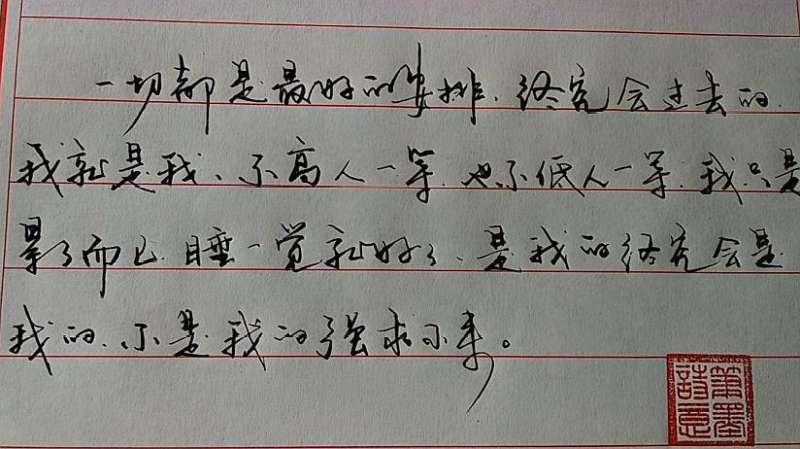 一切都是最好的安排、终究会过去的.
我就是我、不高人一等.也不低人一等.我只是
累了而已.睡一觉就好了、是我的终究会是
我的.不是我的强求不来。
笔墨
诗意